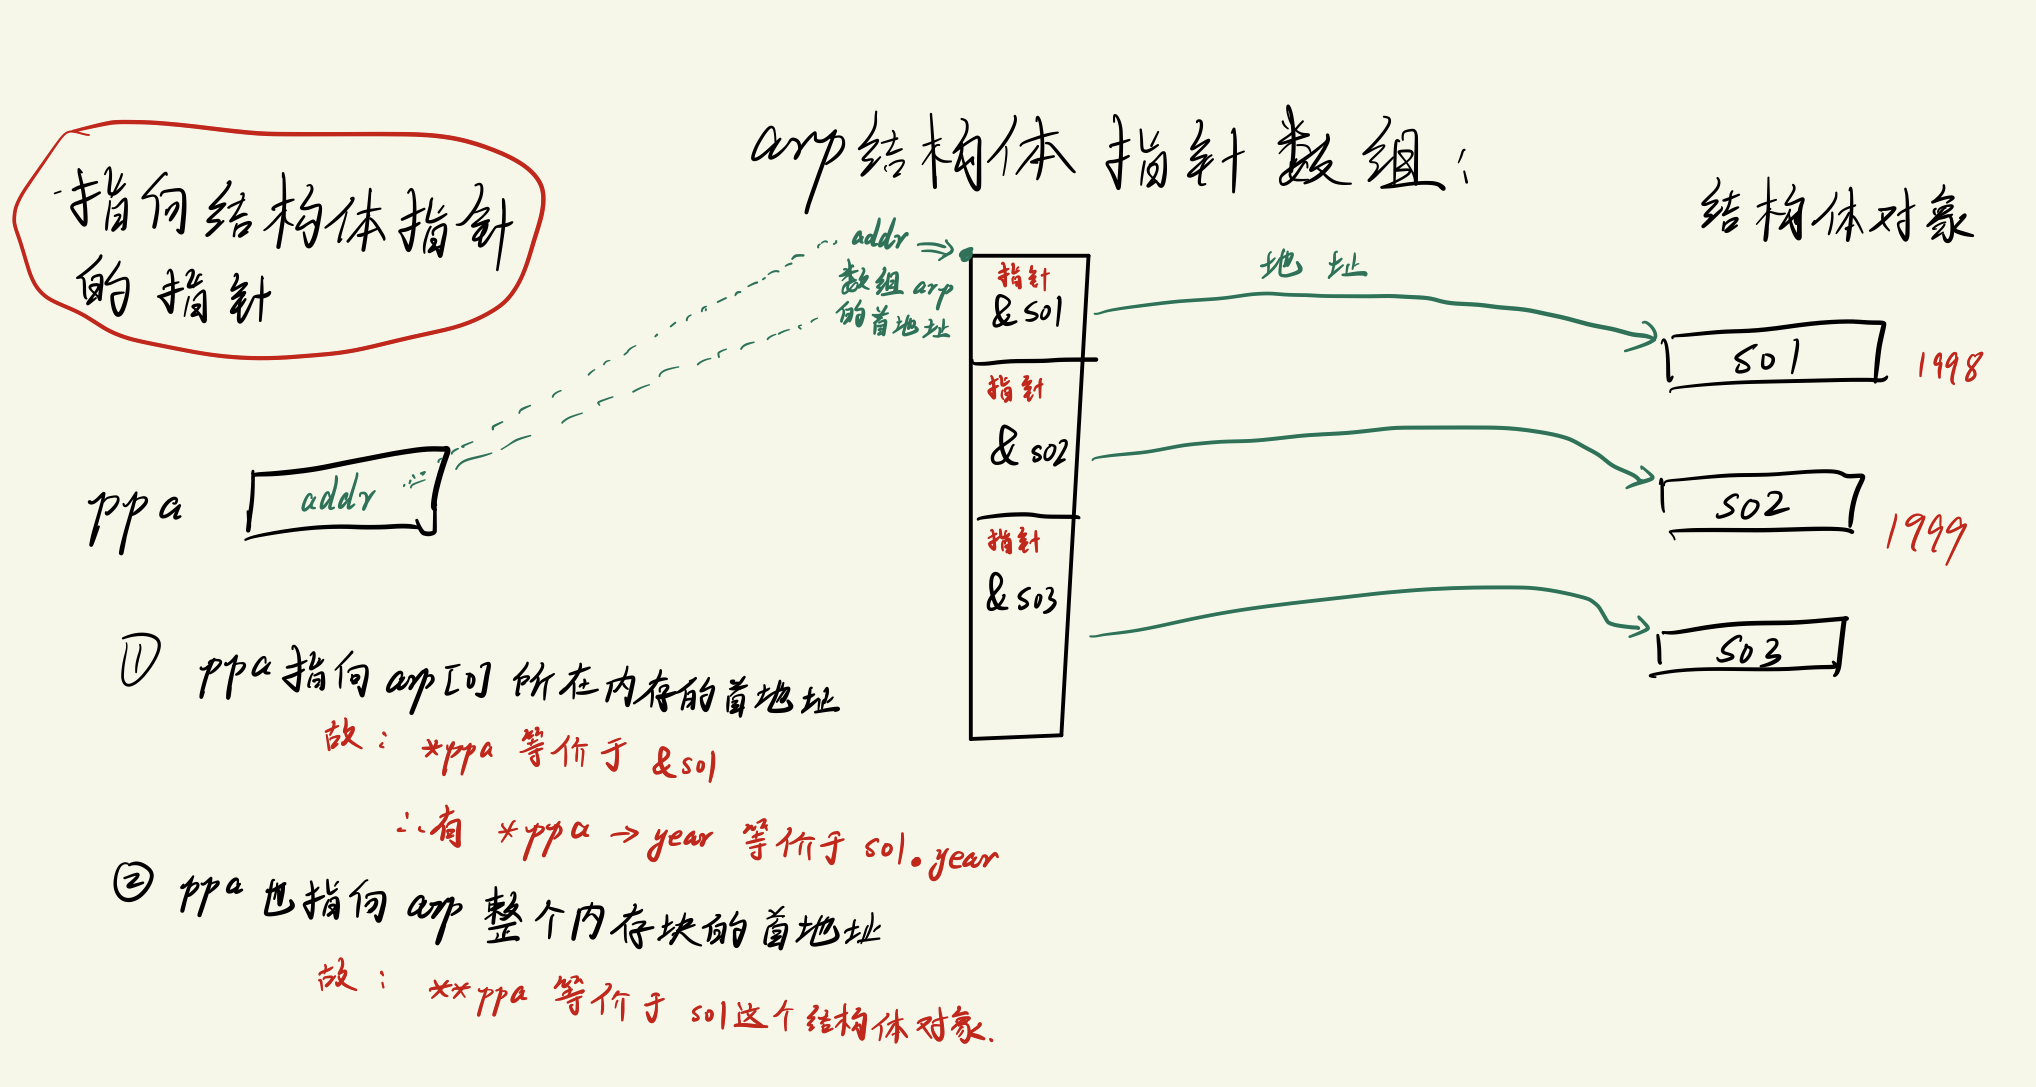 指向结构体指针
的指针
arp结构体指针数组:
结构体对象
addr
数组arp
的首地址
指针
&s01
地址
s01
1998
指针
&s02
s02
1999
指针
&s03
s03
ppa
addr
① ppa指向arp[0]所在内存的首地址
故: *ppa 等价于 &s01
∴有 *ppa→year 等价于 s01.year
② ppa也指向arp整个内存块的首地址
故: **ppa 等价于 s01这个结构体对象.